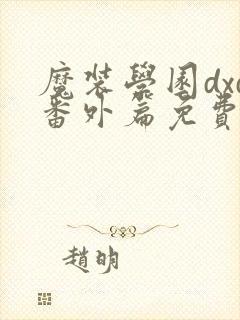 魔裝學園dxd
番外篇免費
趙明